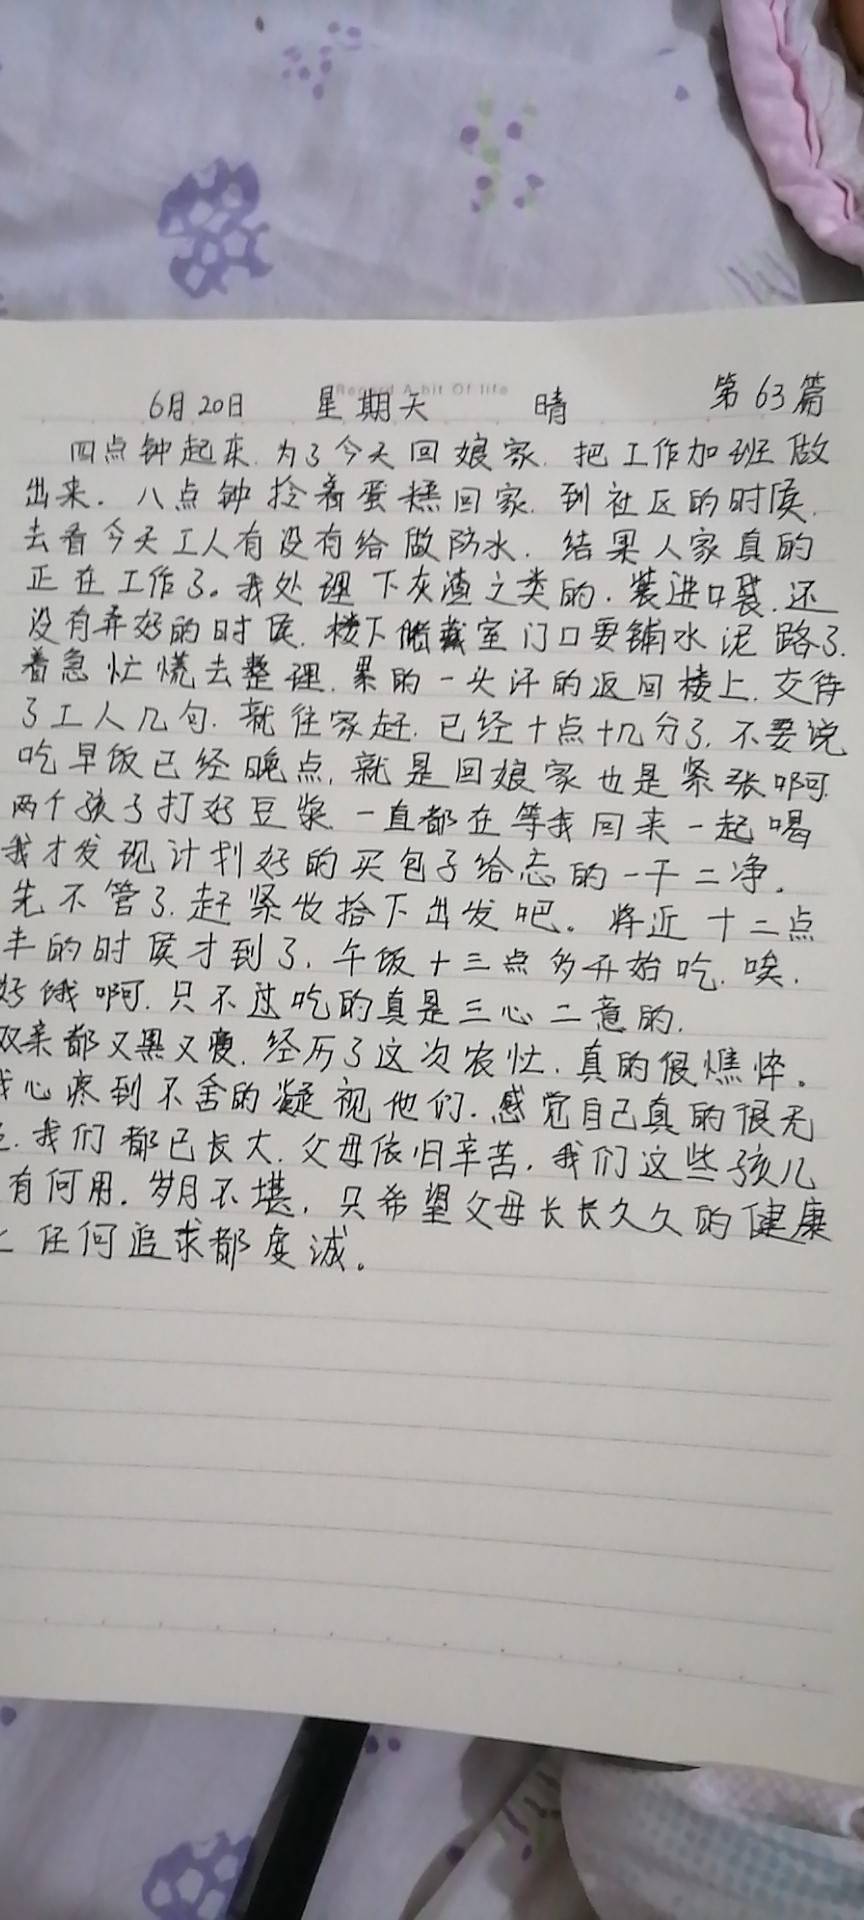 Record A bit Of life
6月20日 星期天 晴 第63篇
四点钟起来.为了今天回娘家.把工作加班做
出来.八点钟拎着蛋糕回家.到社区的时侯.
去看今天工人有没有给做防水.结果人家真的
正在工作了。我处理下灰渣之类的.装进口袋.还
没有弄好的时侯.楼下储藏室门口要铺水泥路了.
着急忙慌去整理.累的一头汗的返回楼上.交待
了工人几句.就往家赶.已经十点十几分了.不要说
吃早饭已经晚点,就是回娘家也是紧张啊.
两个孩子打好豆浆.一直都在等我回来一起喝
我才发现计划好的买包子给忘的一干二净.
先不管了.赶紧收拾下出发吧。将近十二点
半的时侯才到了.午饭十三点多开始吃.唉.
好饿啊.只不过吃的真是三心二意的.
双亲都又黑又瘦.经历了这次农忙.真的很憔悴。
我心疼到不舍的凝视他们.感觉自己真的很无
.我们都已长大.父母依旧辛苦.我们这些孩儿
有何用.岁月不堪.只希望父母长长久久的健康
任何追求都虔诚。